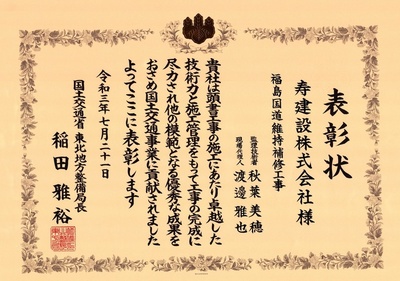 表彰状
寿建設株式会社様
福島国道維持補修工事
監理技術者 秋葉美穂
現場代理人 渡邊雅也
貴社は頭書工事の施工にあたり卓越した
技術力と施工管理をもって工事の完成に
尽力され他の模範となる優秀な成果を
おさめ国土交通事業に貢献されました
よってここに表彰します
令和三年七月二十一日
国土交通省 東北地方整備局長
稲田雅裕